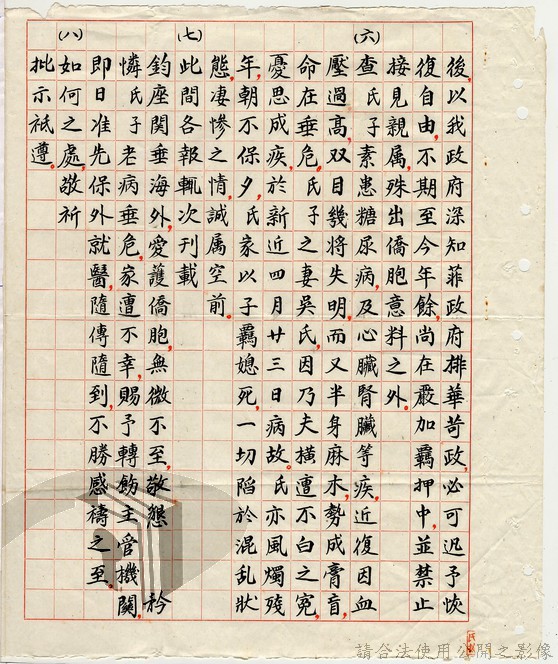 後,以我政府深知菲政府排華苛政,必可迅予恢
復自由,不期至今年餘,尚在嚴加羈押中,並禁止
接見親屬,殊出僑胞意料之外。
(六)
查氏子素患糖尿病,及心臟腎臟等疾,近復因血
壓過高,双目幾將失明,而又半身麻木,勢成膏肓,
命在垂危,氏子之妻吳氏,因乃夫橫遭不白之冤,
憂思成疾,於新近四月廿三日病故。氏亦風燭殘
年,朝不保夕,氏家以子羈媳死,一切陷於混乱狀
態,凄慘之情,誠属空前。
(七)
此間各報輒次刊載
鈞座関垂海外,愛護僑胞,無微不至,敬懇 矜
憐氏子老病垂危,家遭不幸,賜予轉飭主管機関,
即日准先保外就醫,隨傳隨到,不勝感禱之至。
(八)
如何之處,敬祈
批示祇遵。
請合法使用公開之影像